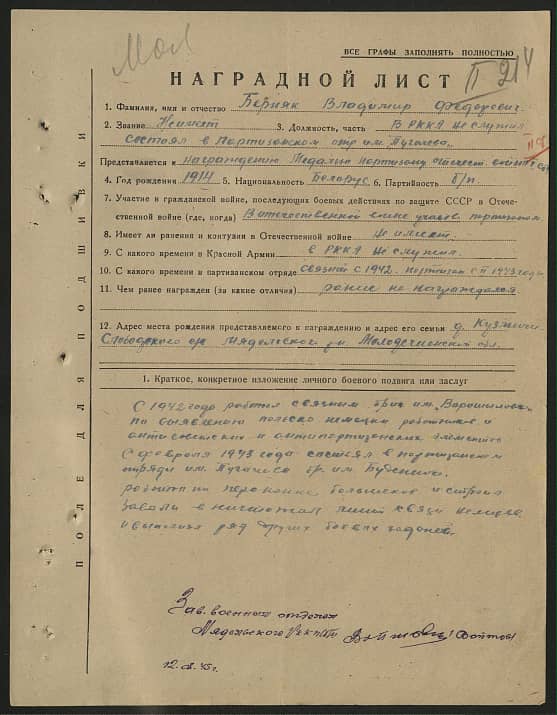 Мол
ВСЕ ГРАФЫ ЗАПОЛНЯТЬ ПОЛНОСТЬЮ
НАГРАДНОЙ ЛИСТ
1. Фамилия, имя и отчество Берняк Владимир Федорович
2. Звание Неимеет 3. Должность, часть В РККА не служил
состоял в партизанском отр им. Пугачева
Представляется к награждению Медалью партизану отечест. войны
4. Год рождения 1914 5. Национальность Беларус 6. Партийность б/п
7. Участие в гражданской войне, последующих боевых действиях по защите СССР в Отече-
ственной войне (где, когда) В отечественной
8. Имеет ли ранения и контузии в Отечественной войне не имеет.
9. С какого времени в Красной Армии в РККА не служил.
10. С какого времени в партизанском отряде связной с 1942. партизан с II 1943 года
11. Чем ранее награжден (за какие отличия) ранее не награждался
12. Адрес места рождения представляемого к награждению и адрес его семьи д.
Слободского с/с Мядельского р-н Молодечненской обл.
1. Краткое, конкретное изложение личного боевого подвига или заслуг
С 1942 года работал связным бриг им. "Ворошилова"
по выявлению польско немецких работников и
антисоветских и антипартизанских элементов
С февраля 1943 года состоял в партизанском
отряде им. Пугачева бр. им. Буденного.
и строил
завалы
и выполнял ряд других боевых задачей.
Зав. военным отделом
Мядельского РК КП(б)Б
12.
ПОЛЕ ДЛЯ ПОДШИВКИ